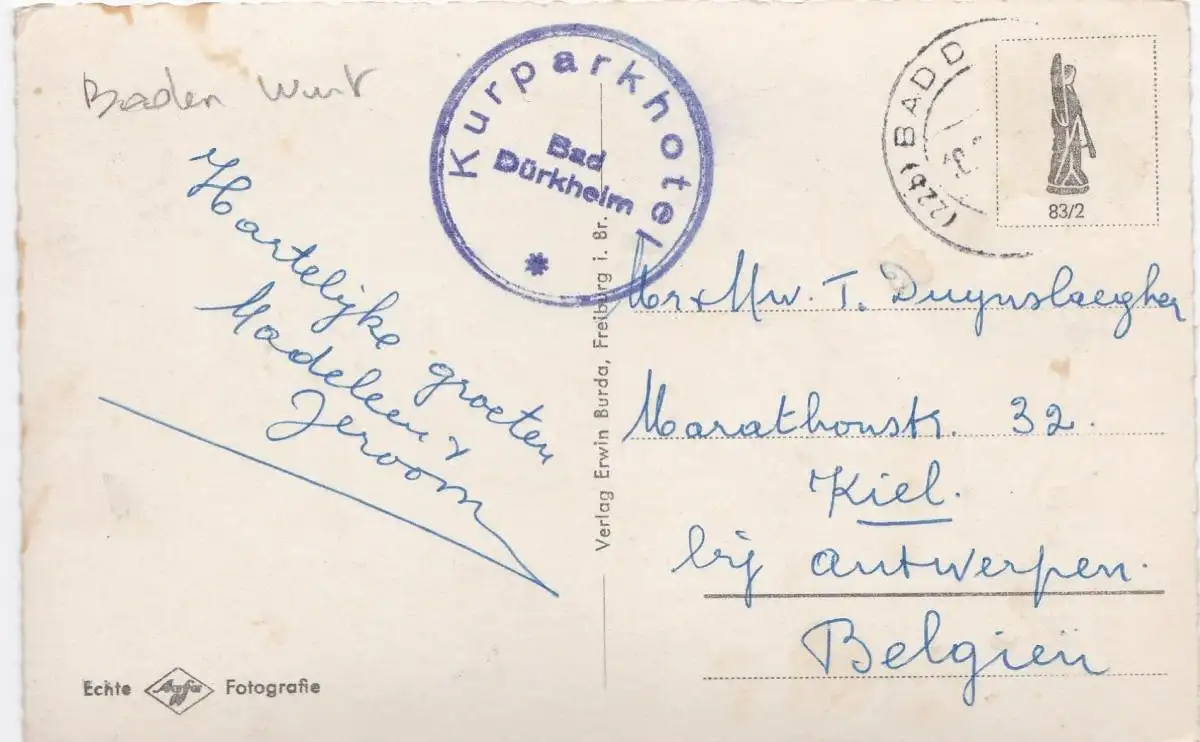 Baden Wurt
Kurparkhotel
Bad
Dürkheim
*
(22b) BAD D
83/2
Hartelijke groeten
Madeleen &
Jeroom
Mr & Mw. T. Duynslaegher
Marathonstr. 32.
Kiel.
bij Antwerpen.
Belgien
Verlag Erwin Burda, Freiburg i. Br.
Echte Agfa Fotografie